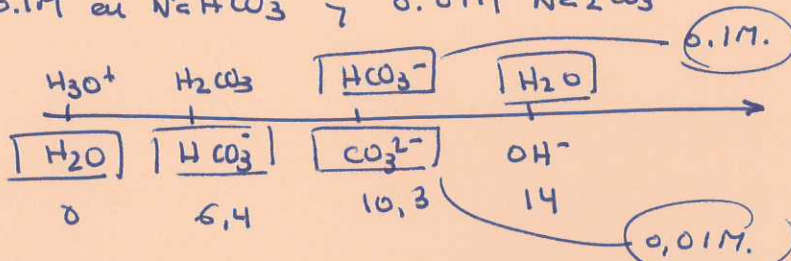 0.1M en NaHCO3 y 0.01M Na2CO3
0.1M.
H3O+ H2CO3 HCO3- H2O
H2O HCO3- CO3²- OH-
0 6,4 10,3 14
0,01M.